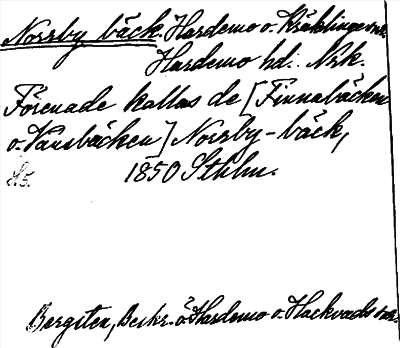 Norrby bäck. Hardemo o. Kräklinge snr.
Hardemo hd. Nrk.
Förenade kallas de [Finnabäcken
o. Vansbäcken] Norrby-bäck,
1850 Sthlm.
Bergsten, Beskr. ö. Hardemo o. Hackvads snr.